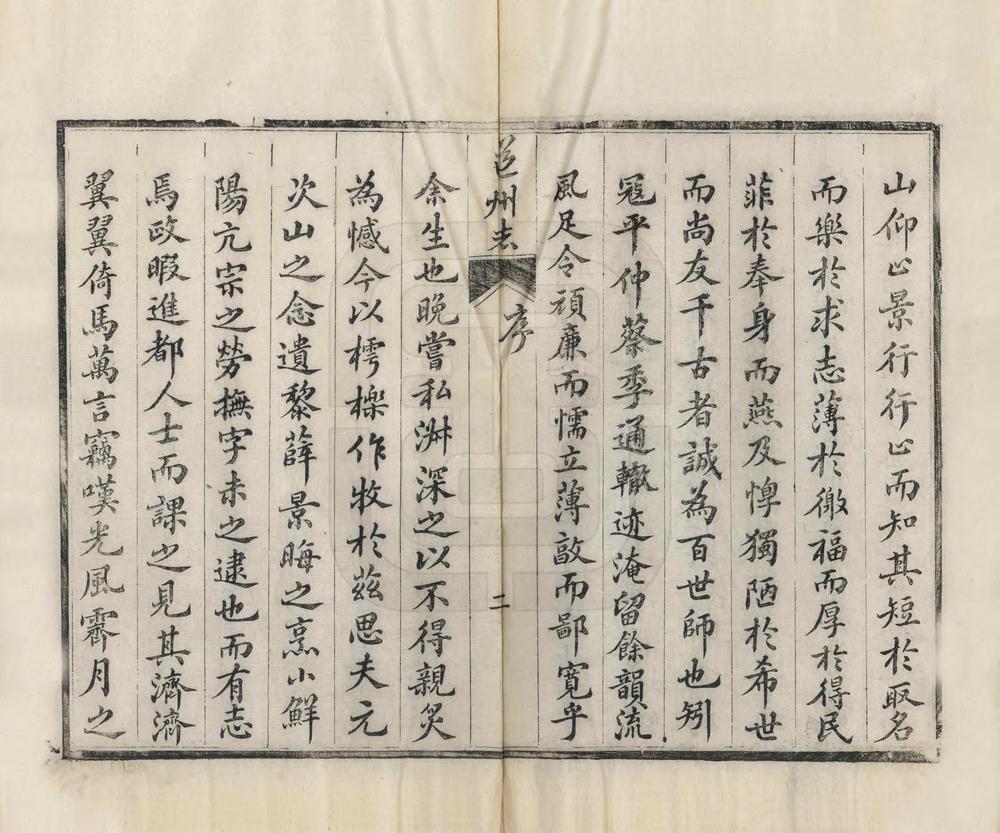 山仰止景行行止而知其短於取名
而樂於求志薄於徼福而厚於得民
菲於奉身而燕及惸獨陋於希世
而尚友千古者誠為百世師也矧
寇平仲蔡季通轍迹淹留餘韻流
風足令頑廉而懦立薄敦而鄙寬乎
道州志 序 二
余生也晚嘗私淑深之以不得親炙
為憾今以樗櫟作牧於茲思夫元
次山之念遺黎薛景晦之烹小鮮
陽亢宗之勞撫字未之逮也而有志
焉政暇進都人士而課之見其濟濟
翼翼倚馬萬言竊嘆光風霽月之